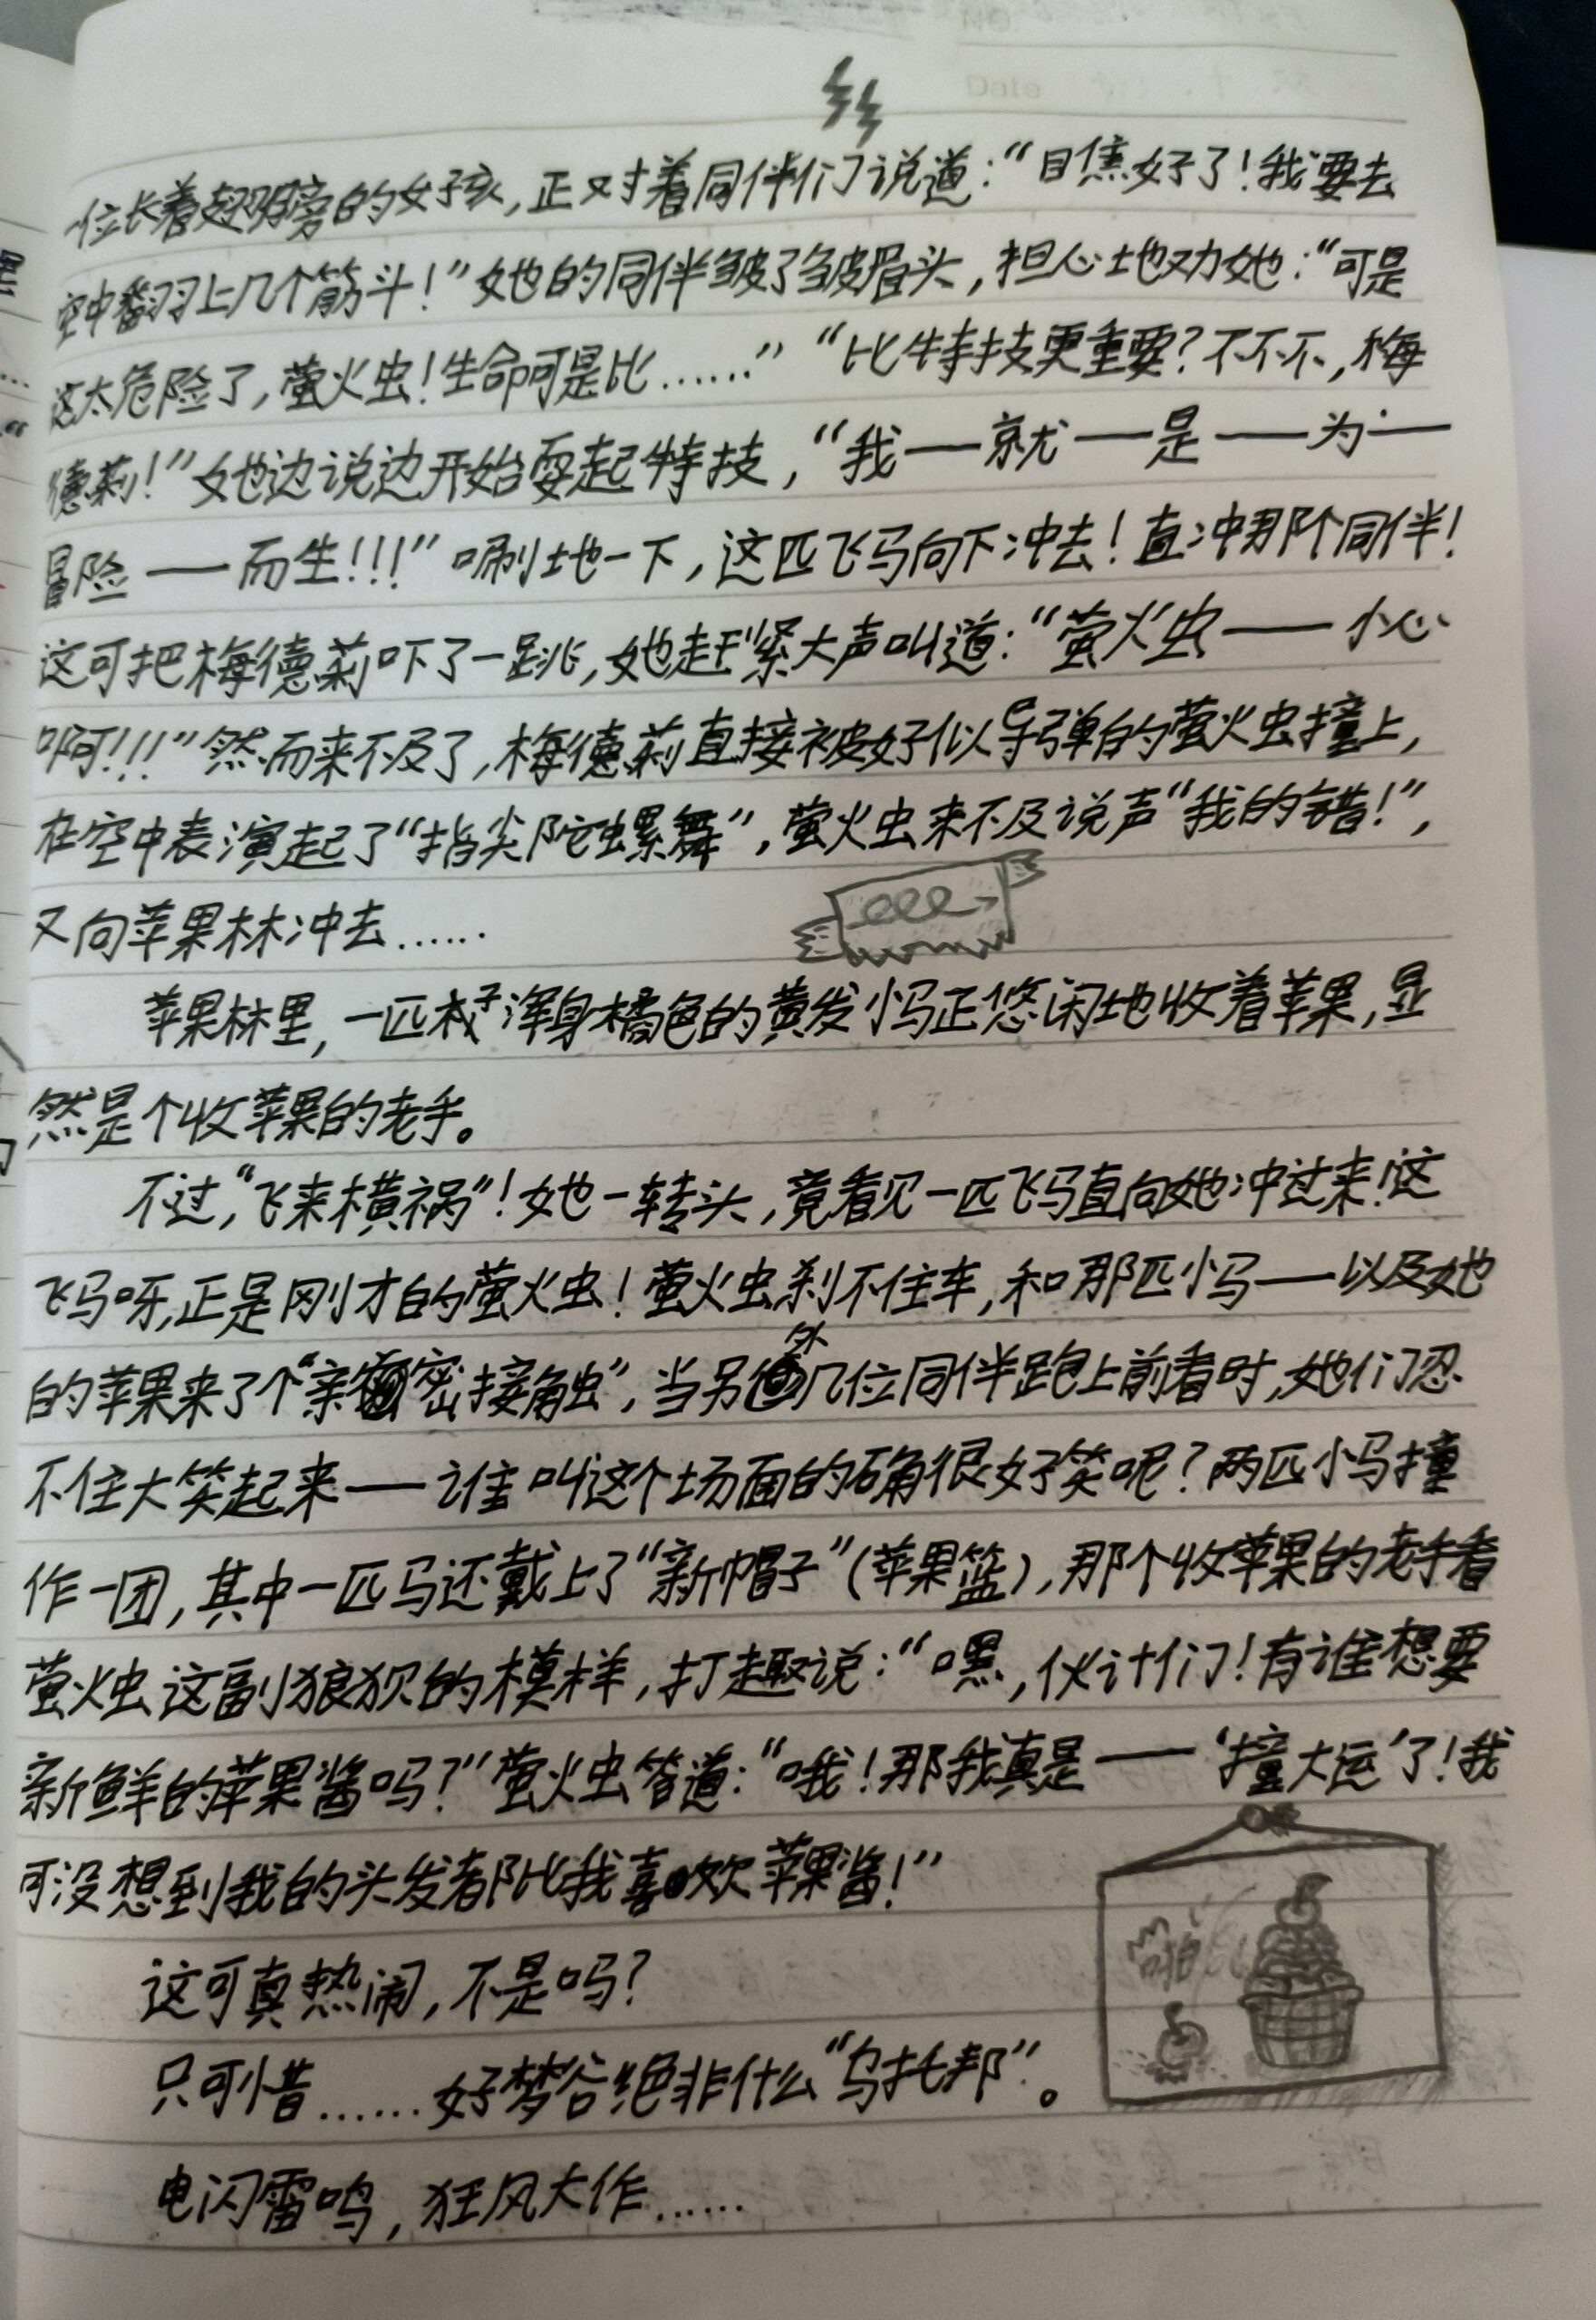 Date
位长着翅膀的女孩，正对着同伴们说道：“目焦好了！我要去
空中翻上几个筋斗！”她的同伴皱了皱眉头，担心地劝她：“可是
这太危险了，萤火虫！生命可是比……”“比特技更重要？不不不，梅
德莉！”她边说边开始耍起特技，“我——就——是——为——
冒险——而生！！！”唰地一下，这匹飞马向下冲去！直冲那个同伴！
这可把梅德莉吓了一跳，她赶紧大声叫道：“萤火虫——小心
啊！！！”然而来不及了，梅德莉直接被好似导弹的萤火虫撞上，
在空中表演起了“指尖陀螺舞”，萤火虫来不及说声“我的错！”，
又向苹果林冲去……
苹果林里，一匹浑身橘色的黄发小马正悠闲地收着苹果，显
然是个收苹果的老手。
不过，“飞来横祸”！她一转头，竟看见一匹飞马直向她冲过来！这
飞马呀，正是刚才的萤火虫！萤火虫刹不住车，和那匹小马——以及她
的苹果来了个“亲密接触”，当另外几位同伴跑上前看时，她们忍
不住大笑起来——谁叫这个场面的确很好笑呢？两匹小马撞
作一团，其中一匹马还戴上了“新帽子”（苹果篮），那个收苹果的老手看
萤火虫这副狼狈的模样，打趣说：“嘿，伙计们！有谁想要
新鲜的苹果酱吗？”萤火虫答道：“哦！那我真是——‘撞大运’了！我
可没想到我的头发都比我喜欢苹果酱！”
啪
这可真热闹，不是吗？
只可惜……好梦谷绝非什么“乌托邦”。
电闪雷鸣，狂风大作……